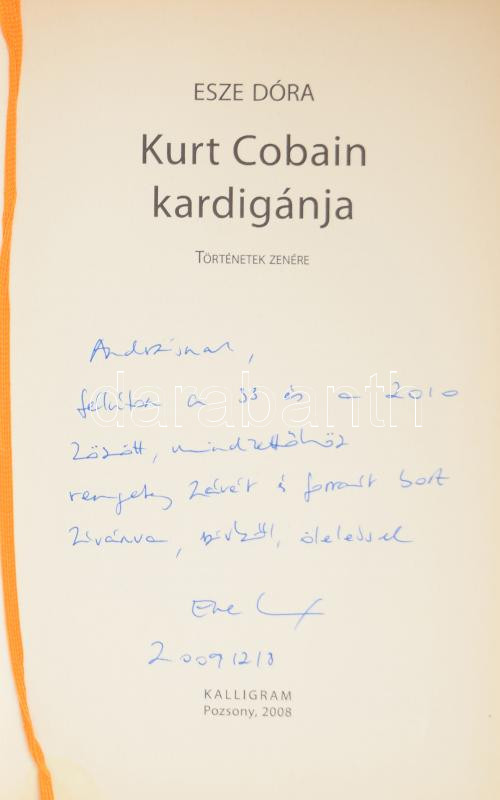 ESZE DÓRA
Kurt Cobain
kardigánja
TÖRTÉNETEK ZENÉRE
Andrásnak,
félúton a 33 és a 2010
között, mindkettőhöz
rengeteg kávét és forralt bort
kívánva, szívből, öleléssel
Esze
2009 12/8
darabanth
KALLIGRAM
Pozsony, 2008